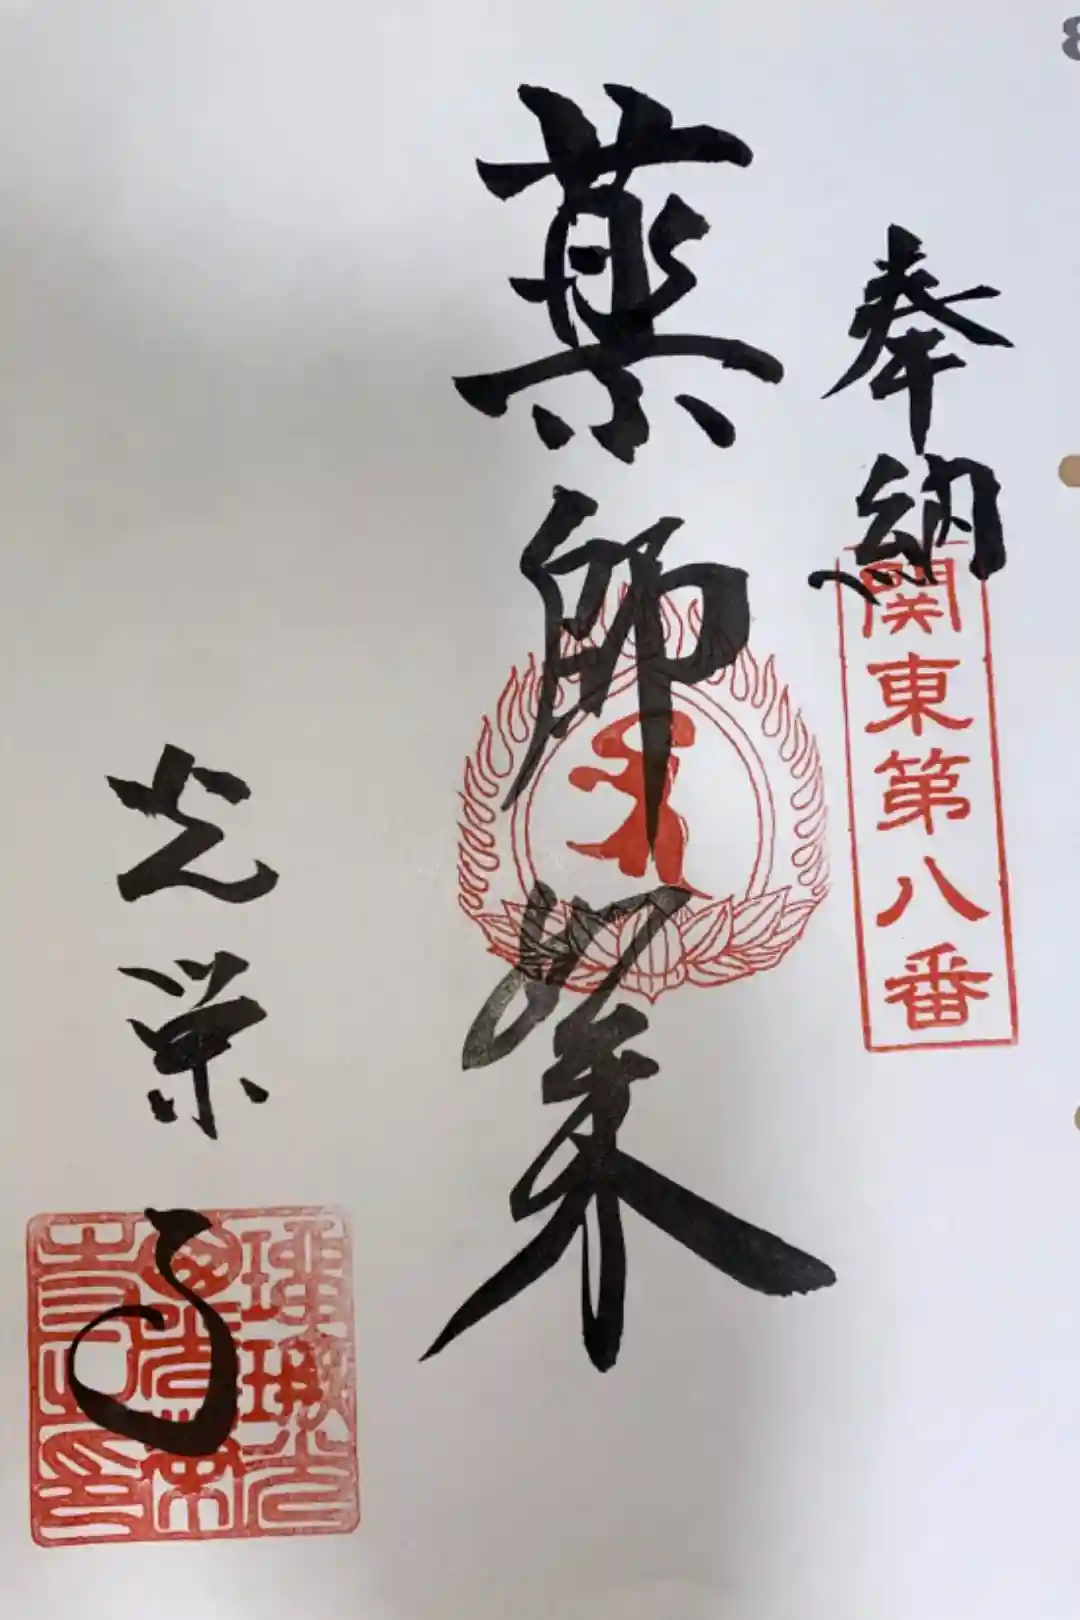 奉納
関東第八番
薬師如来
光栄寺